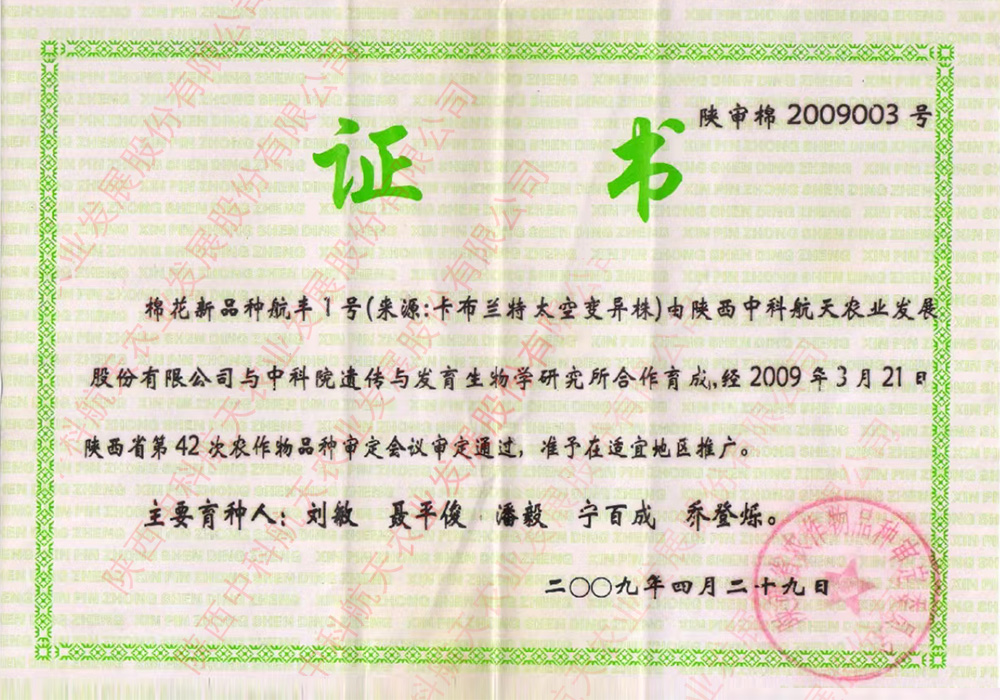 陕审棉 2009003 号
证 书
棉花新品种航丰1号(来源:卡布兰特太空变异株)由陕西中科航天农业发展
股份有限公司与中科院遗传与发育生物学研究所合作育成,经 2009 年 3 月 21 日
陕西省第 42 次农作物品种审定会议审定通过，准予在适宜地区推广。
主要育种人：刘敏 聂平俊 潘毅 宁百成 乔登烁。
二〇〇九年四月二十九日
陕西中科航天农业发展股份有限公司
XIN PIN ZHONG SHEN DING ZHENG